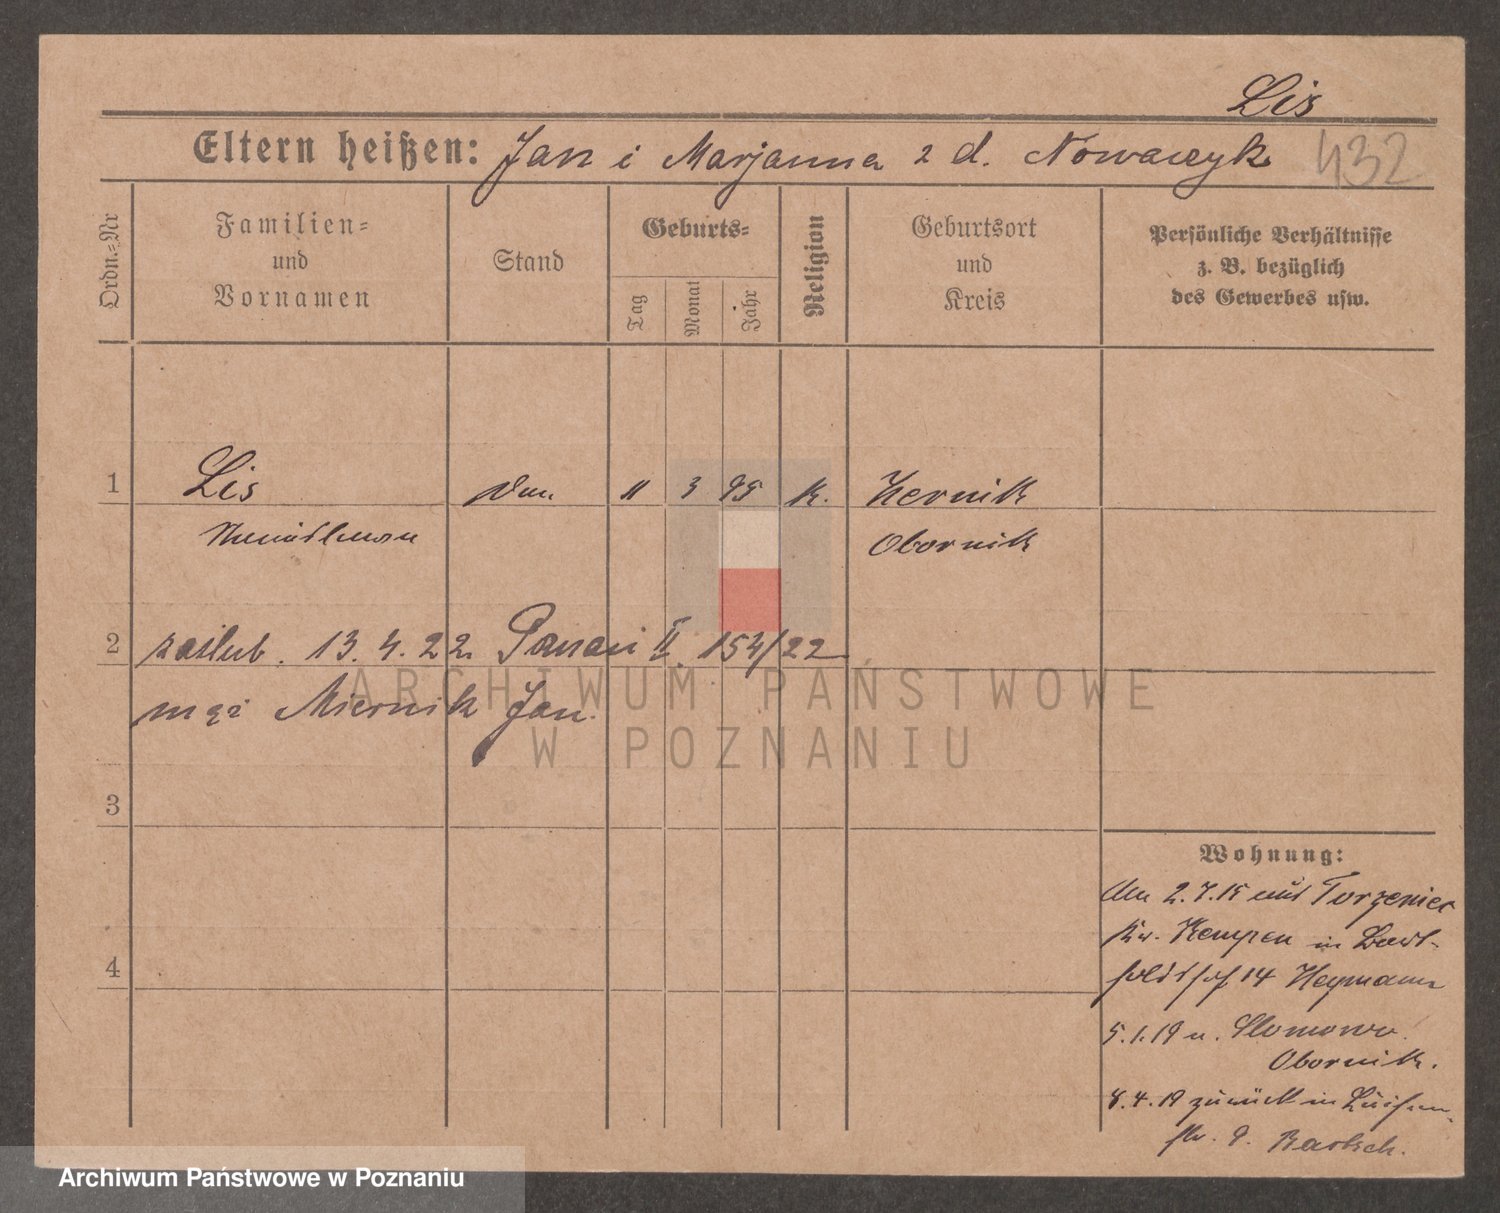 Lis
Eltern heißen: Jan i Marjanna z d. Nowaczyk
432
Ordn.-Nr
Familien- und Vornamen
Stand
Geburts-
Tag
Monat
Jahr
Religion
Geburtsort und Kreis
Persönliche Verhältnisse
z. B. bezüglich
des Gewerbes usw.
1 Lis 11 3 95 k.
Obornik
2 zaślub. 13.4.22 Poznań II. 154/22
mąż Miernik Jan.
3
4
Wohnung:
Am 2.7.15 aus
Kr. Kempen in
14 Heymann
5.1.19 n. Slomowo
Obornik.
8.4.19 zurück in Luisen-
str. 9. Bartsch.
ARCHIWUM PAŃSTWOWE
W POZNANIU
Archiwum Państwowe w Poznaniu